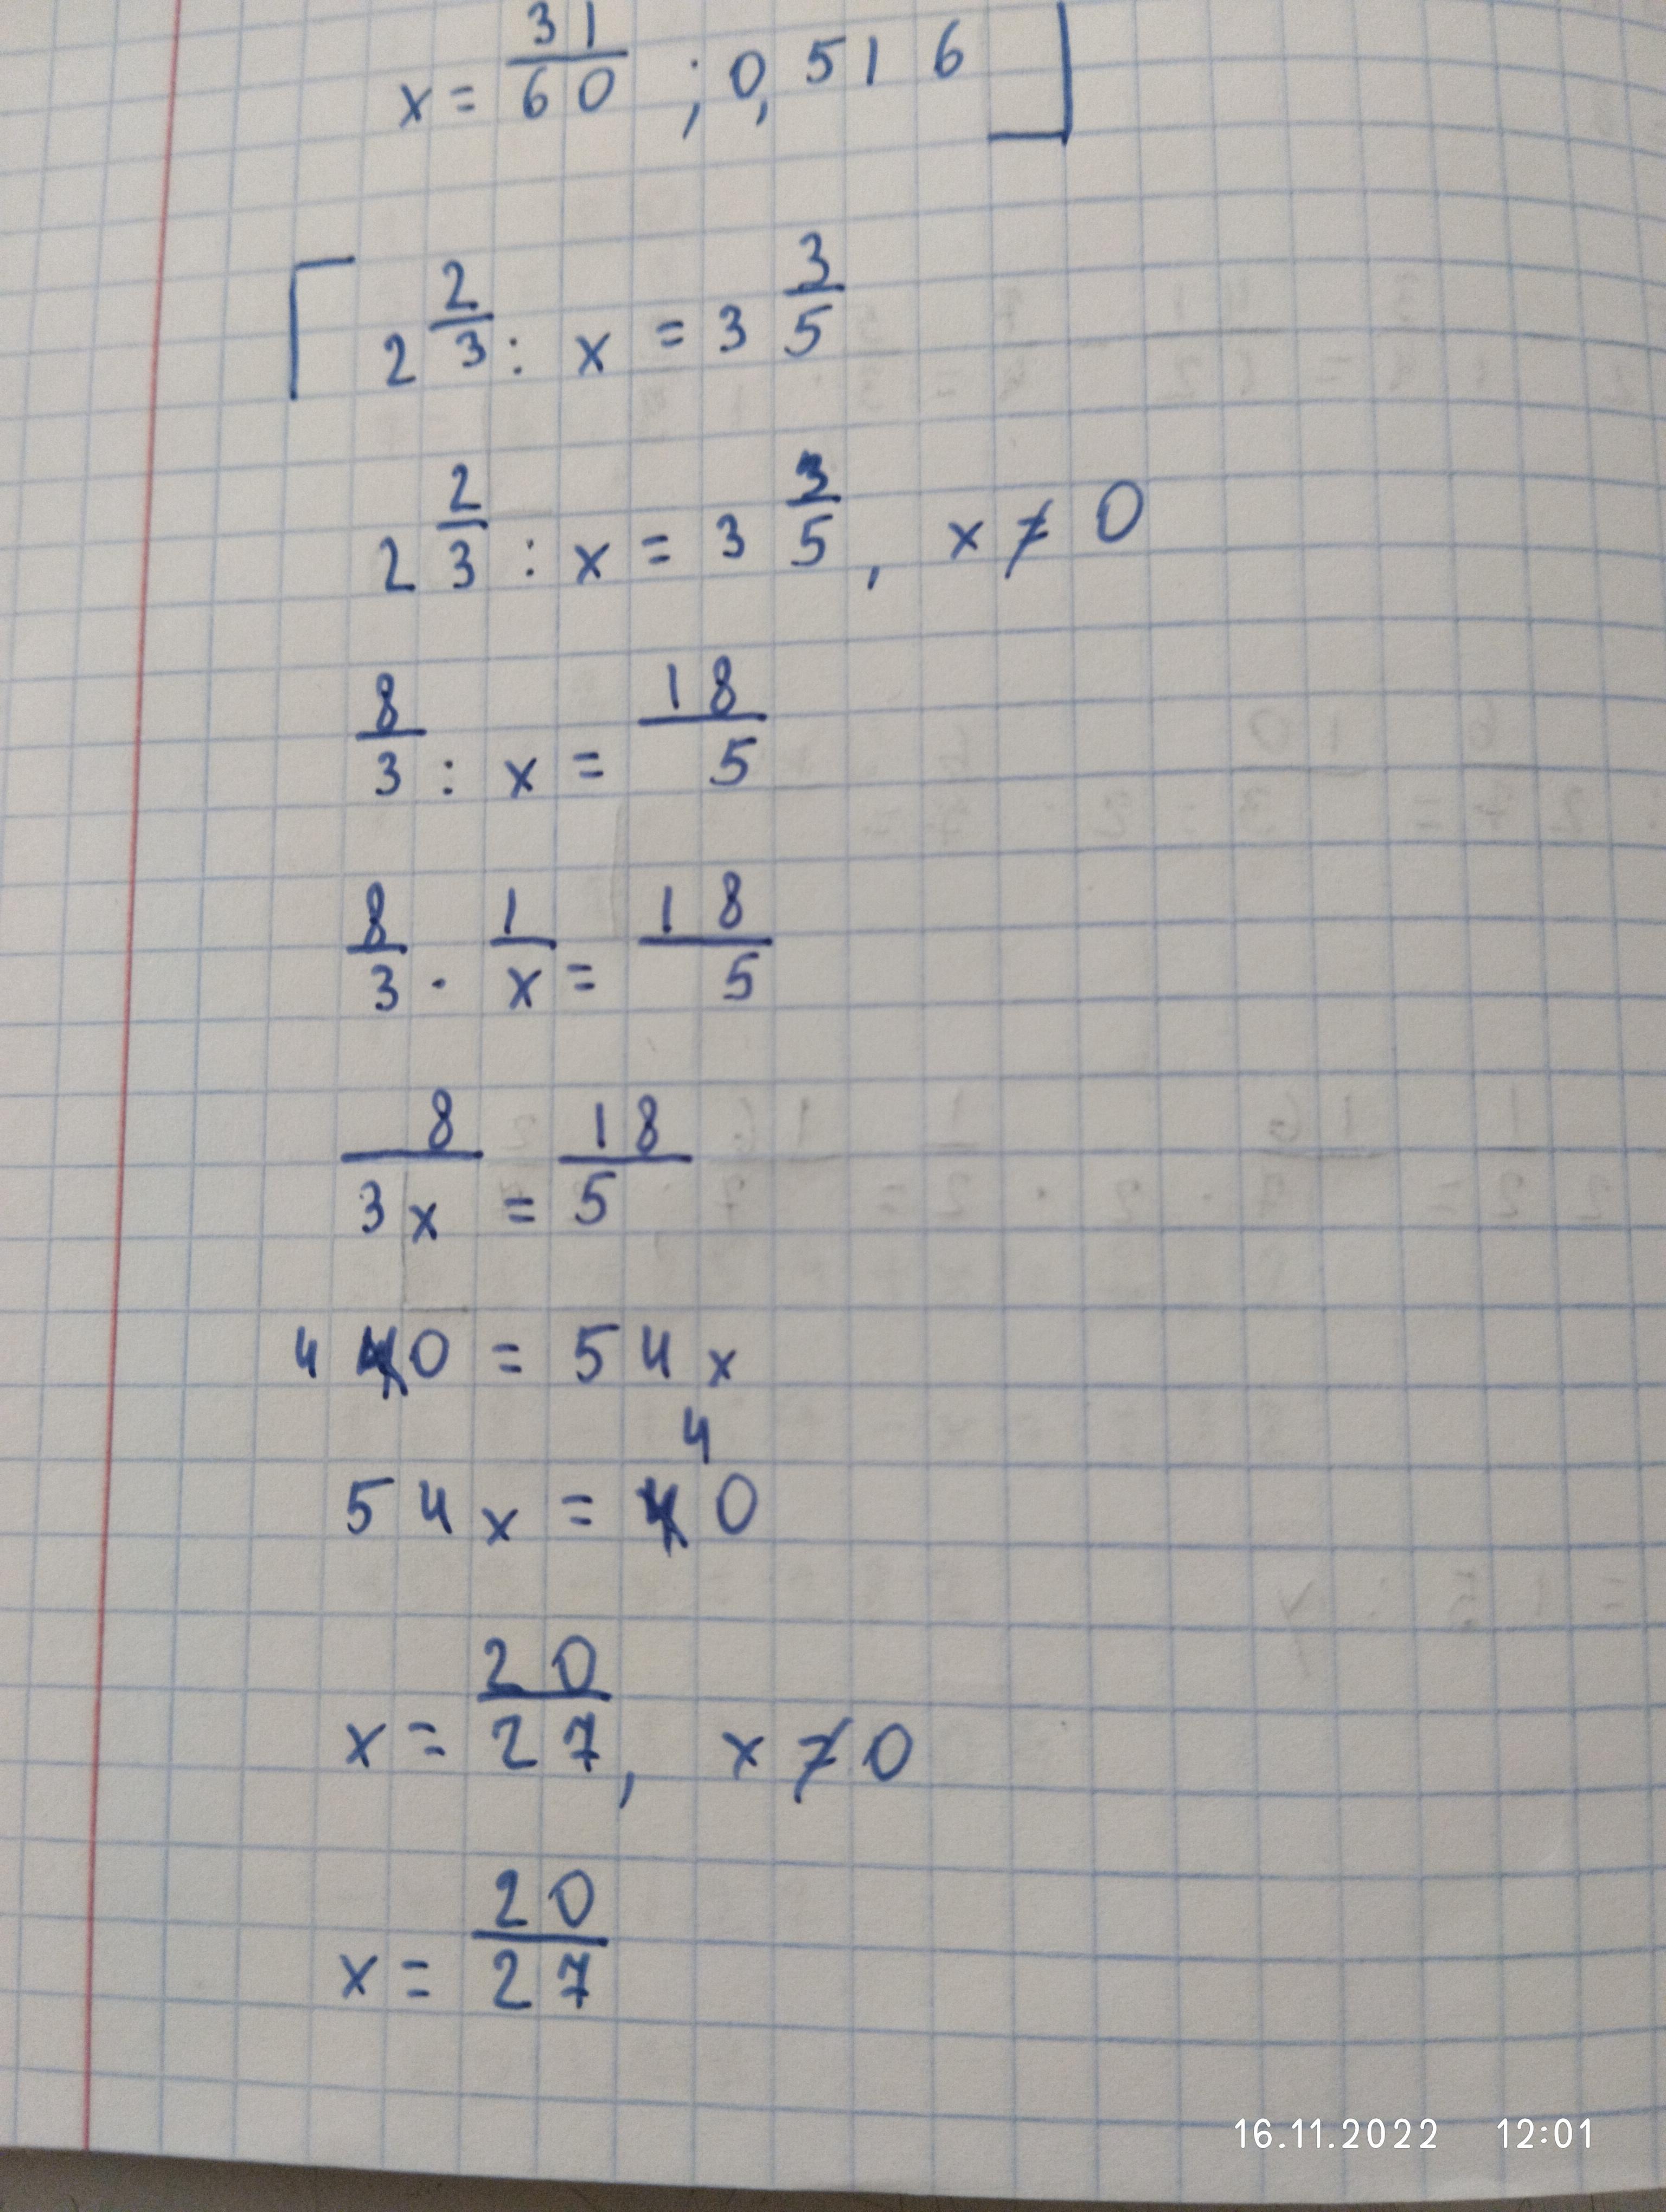 x = 31/60 ; 0,516
2 2/3 : x = 3 3/5
2 2/3 : x = 3 3/5, x ≠ 0
8/3 : x = 18/5
8/3 · 1/x = 18/5
8/3x = 18/5
40 = 54x
54x = 40
x = 20/27, x ≠ 0
x = 20/27
16.11.2022 12:01